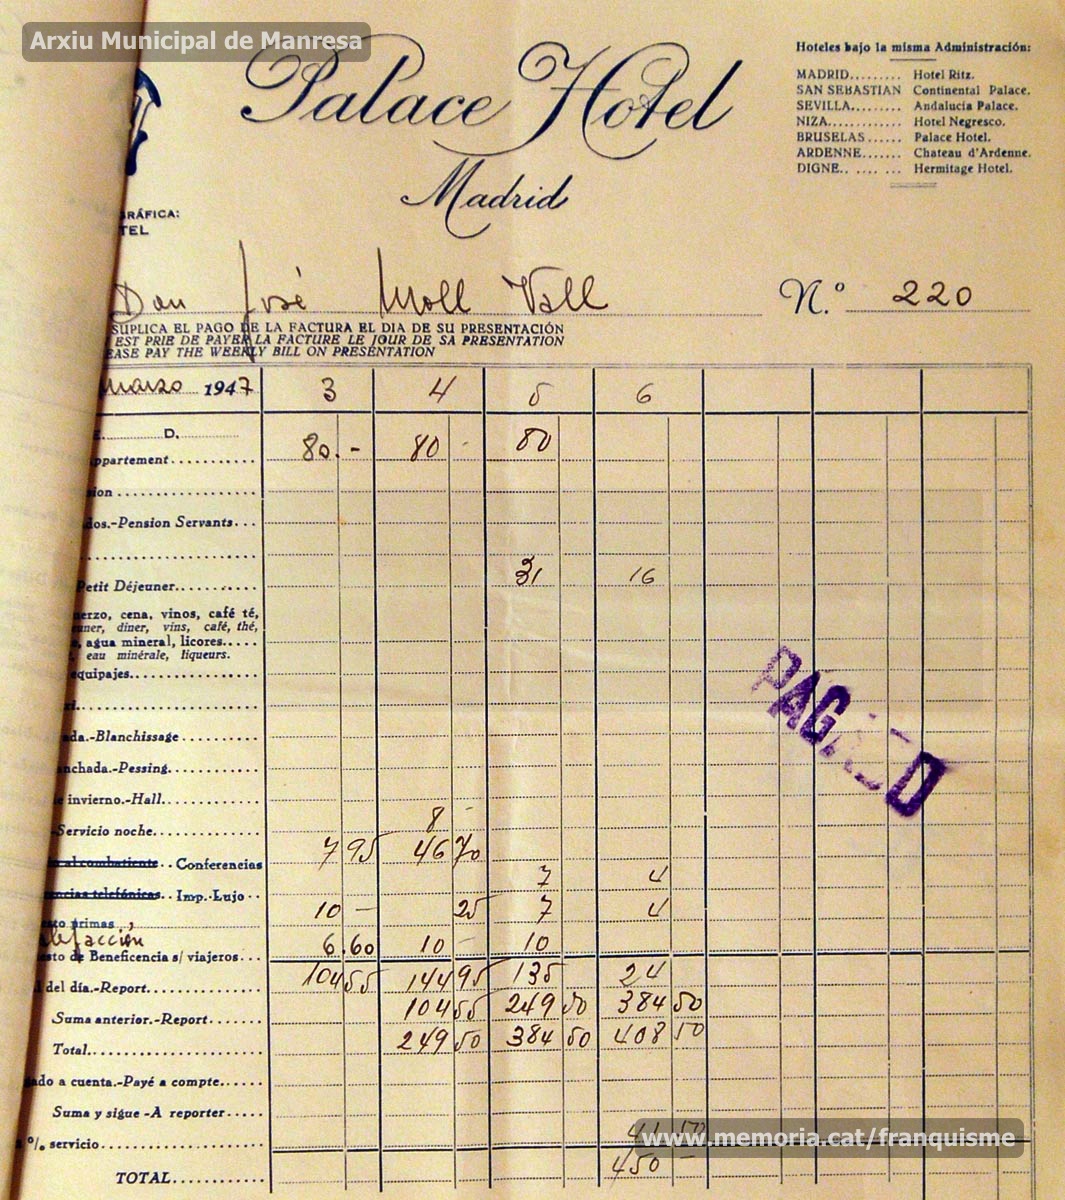 Arxiu Municipal de Manresa
Palace Hotel
Madrid
Hoteles bajo la misma Administración:
MADRID......... Hotel Ritz.
SAN SEBASTIAN Continental Palace.
SEVILLA........ Andalucia Palace.
NIZA............ Hotel Negresco.
BRUSELAS...... Palace Hotel.
ARDENNE....... Chateau d'Ardenne.
DIGNE.. .... ... Hermitage Hotel.
GRÁFICA:
TEL
Don José Moll Vall
N.º 220
SUPLICA EL PAGO DE LA FACTURA EL DIA DE SU PRESENTACIÓN
EST PRIE DE PAYER LA FACTURE LE JOUR DE SA PRESENTATION
EASE PAY THE WEEKLY BILL ON PRESENTATION
Marzo 1947 3 4 5 6
D.
80.- 80 - 80
ppartement...........
sion
dos.-Pension Servants...
Petit Déjeuner.......... 31 16
uerzo, cena, vinos, café té,
euner, diner, vins, café, thé,
, agua mineral, licores.....
eau minérale, liqueurs.
equipajes..............
da.-Blanchissage
nchada.-Pessing...........
e invierno.-Hall............
-Servicio noche............. 8 -
al combatiente.. Conferencias 7 95 46 70
ncias telefónicas.. Imp.-Lujo.. 7 4
sto primas 10 - 25 7 4
lefacción 6.60 10 - 10
sto de Beneficencia s/ viajeros...
del dia.-Report............ 104 55 144 95 135 24
Suma anterior.-Report....... 104 55 249 50 384 50
Total................... 249 50 384 50 408 50
ado a cuenta.-Payé a compte......
Suma y sigue -A reporter.....
% servicio................
TOTAL............ 450 -
PAGADO
www.memoria.cat/franquisme